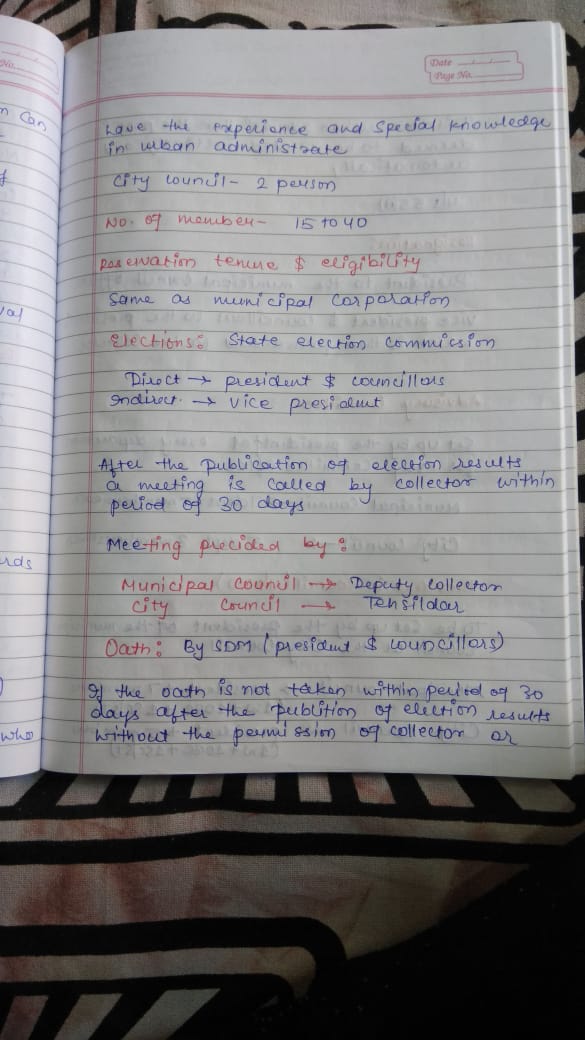 No.
n can
f
val
rds
)
who
Date
Page No.
have the experience and special knowledge
in urban administrate
City council - 2 person
No. of member - 15 to 40
Reservation tenure $ eligibility
Same as municipal corporation
Elections: State election commission
Direct → president $ councillors
Indirect. → vice president
After the publication of election results
a meeting is called by collector within
period of 30 days
Meeting precided by:
Municipal council → Deputy collector
City council → Tehsildar
Oath: By SDM (president $ councillors)
If the oath is not taken within period of 30
days after the publition of election results
without the permission of collector or